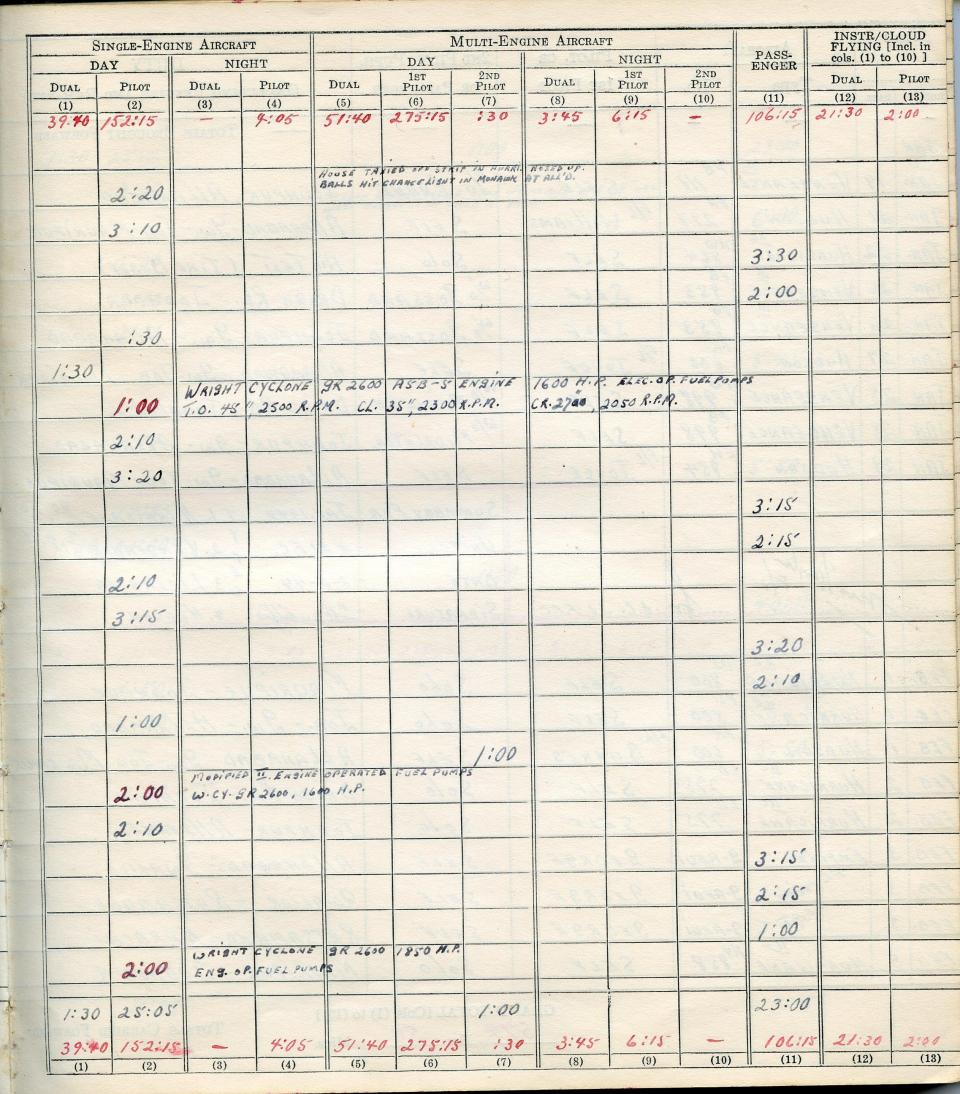 SINGLE-ENGINE AIRCRAFT MULTI-ENGINE AIRCRAFT PASS-ENGER INSTR/CLOUD FLYING [Incl. in cols. (1) to (10) ]
DAY NIGHT DAY NIGHT
DUAL PILOT DUAL PILOT DUAL 1ST PILOT 2ND PILOT DUAL 1ST PILOT 2ND PILOT DUAL PILOT
(1) (2) (3) (4) (5) (6) (7) (8) (9) (10) (11) (12) (13)
39:40 152:15 — 4:05 51:40 275:15 :30 3:45 6:15 — 106:15 21:30 2:00
HOUSE TAXIED OFF STRIP IN HURRI. NOSED UP.
2:20 BALLS HIT CHANCE LIGHT IN MOHAWK AT ALL'D.
3:10
3:30
2:00
:30
1:30
WRIGHT CYCLONE GR 2600 A5B-5 ENGINE 1600 H.P. ELEC. OP. FUEL PUMPS
1:00 T.O. 45", 2500 R.P.M. CL. 35", 2300 R.P.M. CR. , 2050 R.P.M.
2:10
3:20
3:15
2:15
2:10
3:15
3:20
2:10
1:00
1:00
MODIFIED II. ENGINE OPERATED FUEL PUMPS
2:00 W. CY. GR 2600, 1600 H.P.
2:10
3:15
2:15
1:00
WRIGHT CYCLONE GR 2600 1850 H.P.
2:00 ENG. OP. FUEL PUMPS
1:30 25:05 1:00 23:00
39:40 152:15 — 4:05 51:40 275:15 :30 3:45 6:15 — 106:15 21:30 2:00
(1) (2) (3) (4) (5) (6) (7) (8) (9) (10) (11) (12) (13)